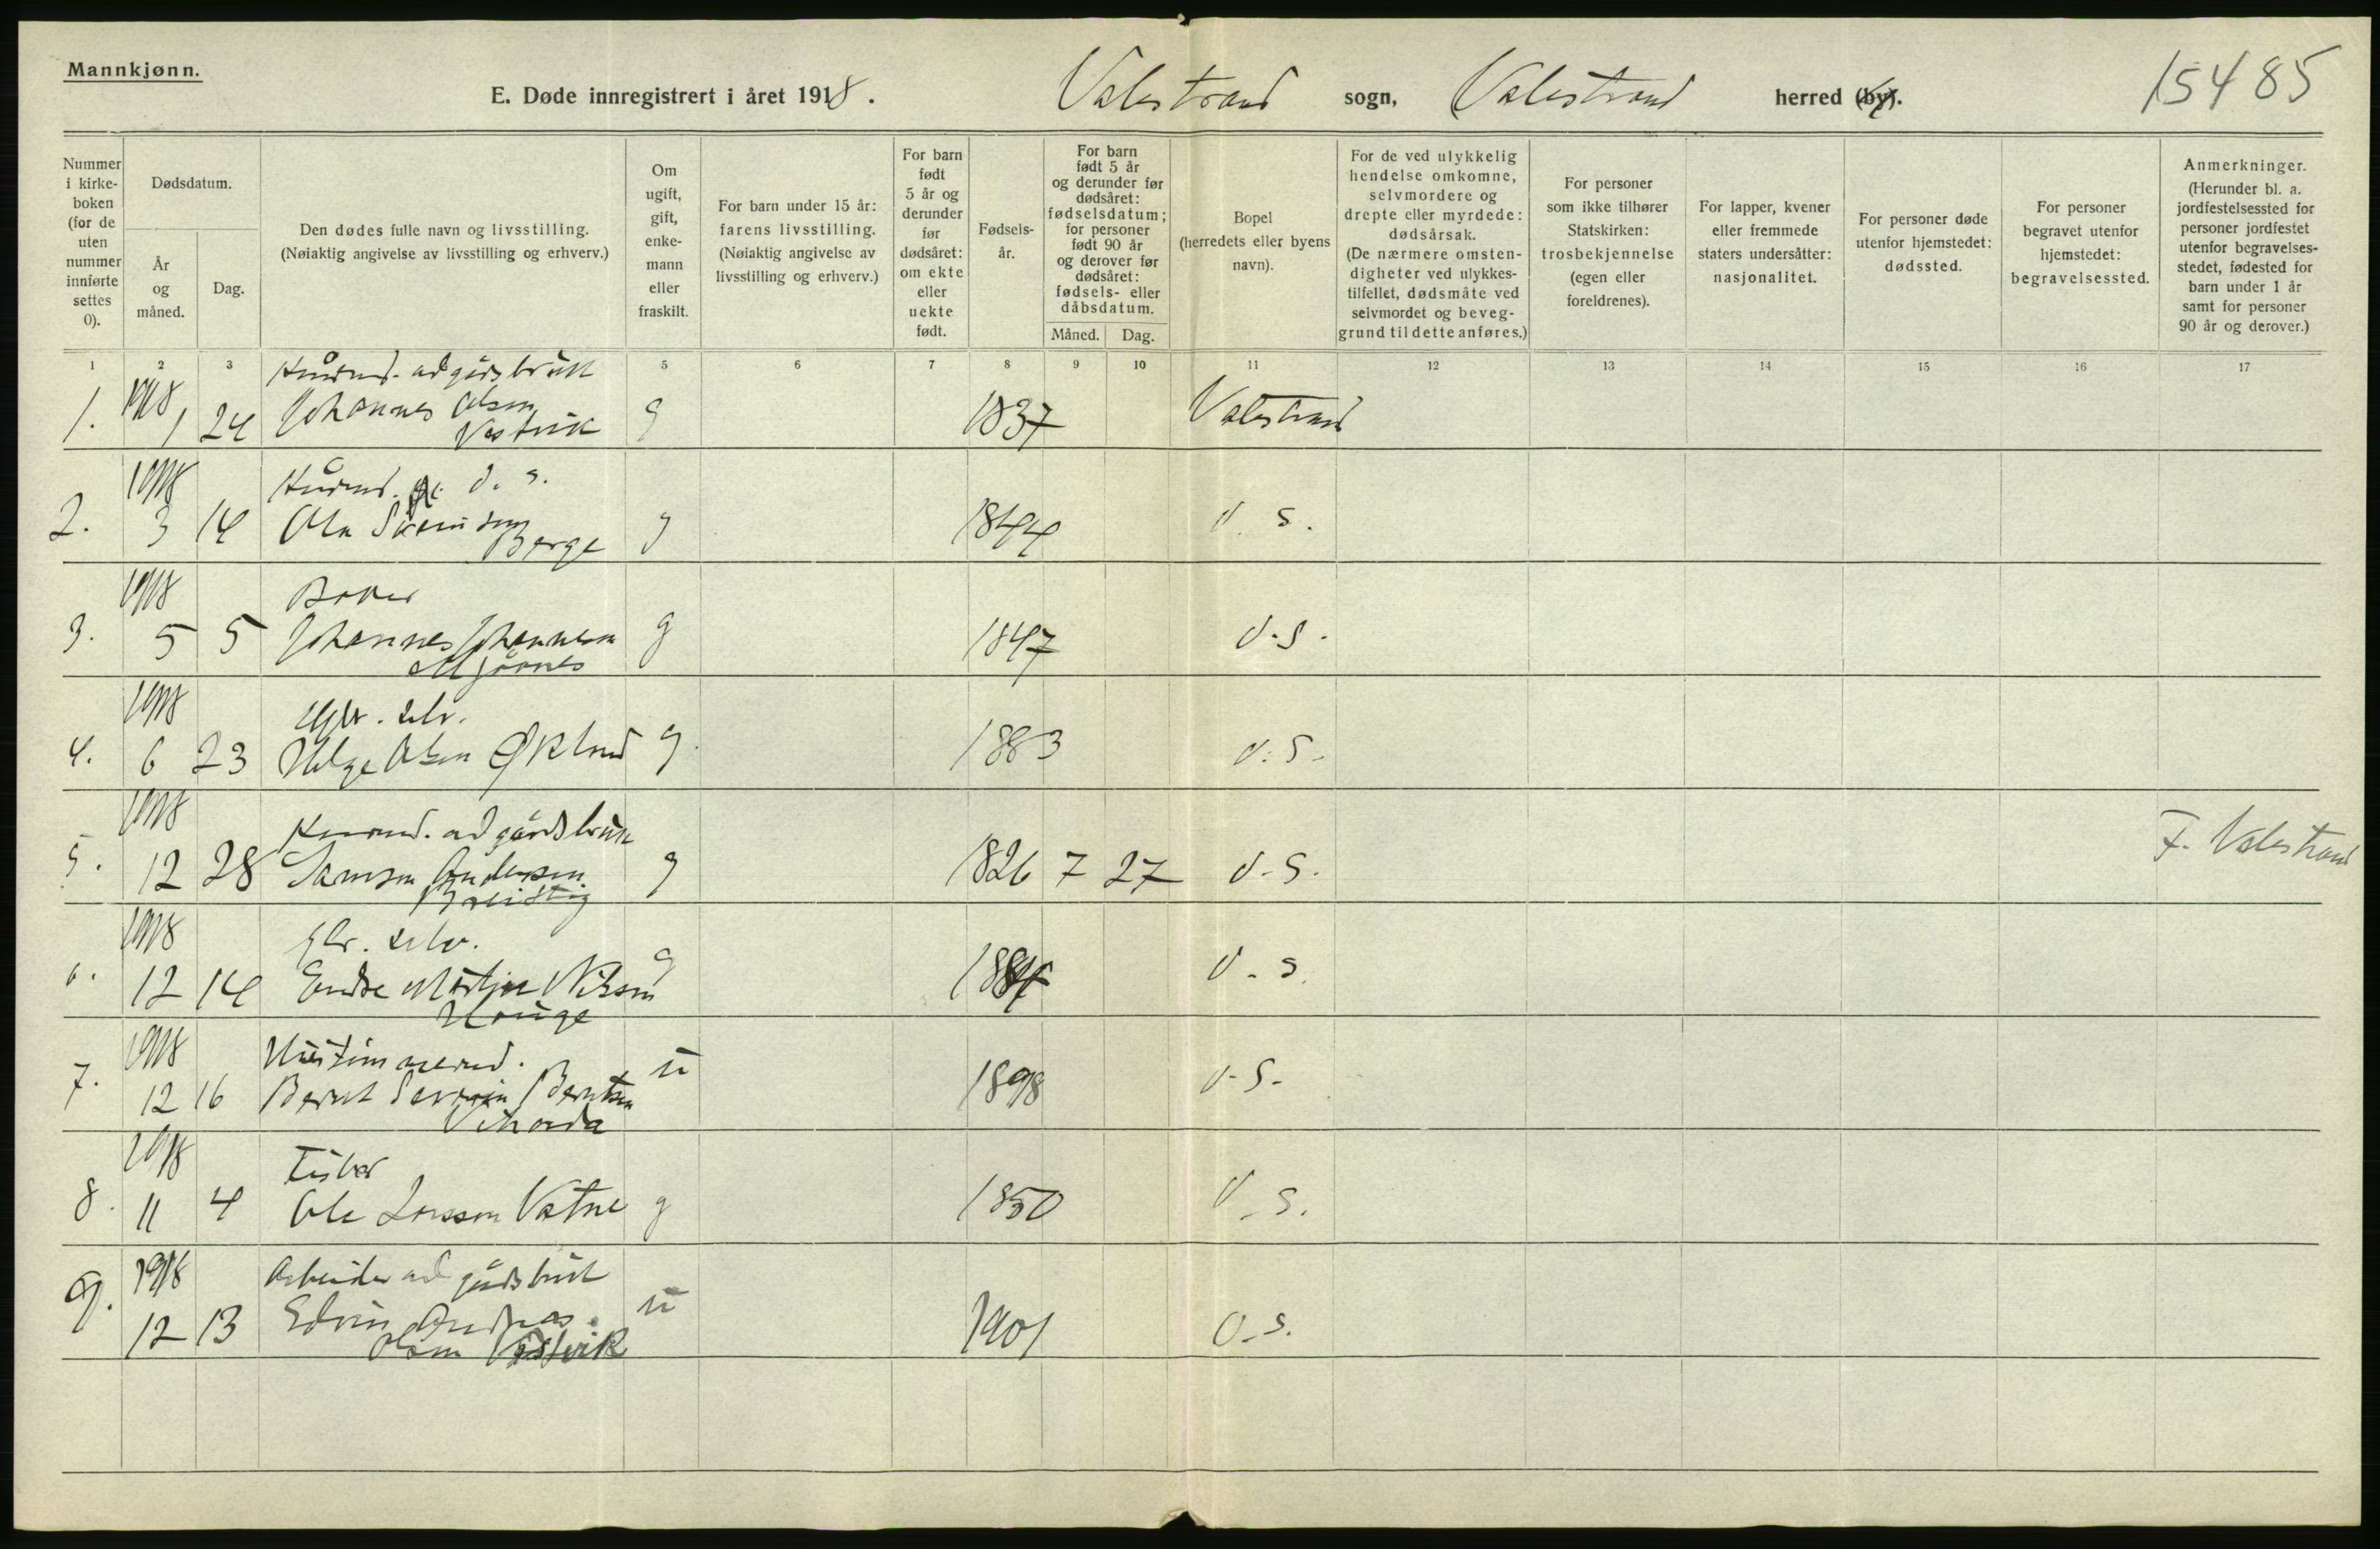 Mannkjønn.
E. Døde innregistrert i året 1918. Valestrand sogn, Valestrand herred (by).
15485
Nummer i kirke-boken (for de uten nummer innførte settes 0).
Dødsdatum.
År og måned.
Dag.
Den dødes fulle navn og livsstilling.
(Nøiaktig angivelse av livsstilling og erhverv.)
Om ugift, gift, enke-mann eller fraskilt.
For barn under 15 år: farens livsstilling.
(Nøiaktig angivelse av livsstilling og erhverv.)
For barn født 5 år og derunder før dødsåret: om ekte eller uekte født.
Fødsels-år.
For barn født 5 år og derunder før dødsåret: fødselsdatum; for personer født 90 år og derover før dødsåret: fødsels- eller dåbsdatum.
Måned. Dag.
Bopel (herredets eller byens navn).
For de ved ulykkelig hendelse omkomne, selvmordere og drepte eller myrdede: dødsårsak.
(De nærmere omsten-digheter ved ulykkes-tilfellet, dødsmåte ved selvmordet og beveg-grund til dette anføres.)
For personer som ikke tilhører Statskirken: trosbekjennelse (egen eller foreldrenes).
For lapper, kvener eller fremmede staters undersåtter: nasjonalitet.
For personer døde utenfor hjemstedet: dødssted.
For personer begravet utenfor hjemstedet: begravelsessted.
Anmerkninger.
(Herunder bl. a. jordfestelsessted for personer jordfestet utenfor begravelses-stedet, fødested for barn under 1 år samt for personer 90 år og derover.)
1 2 3 5 6 7 8 9 10 11 12 13 14 15 16 17
Kårmd. ad gårdsbruk
1. 1918 1 24 Johannes Olsen Vestvik g 1837 Valestrand
Kårmd. d. s.
2. 1918 3 14 Ola Berge g 1844 d. s.
3. 1918 5 5 Johannes Johannesen Mjånes g 1847 d. s.
Gbr. selv.
4. 1918 6 23 Helge Olsen Økland g 1883 d. s.
Kårmd. ad gårdsbruk
5. 1918 12 28 Samson Andersen g 1826 7 27 d. s. F. Valestrand
Gbr. selv.
6. 1918 12 14 Endre Martin Nilsen Hauge g d. s.
7. 1918 12 16 Bernt Severin Berntsen u 1898 d. s.
Fisker
8. 1918 11 4 Ole Larsson Vatne g 1850 d. s.
Arbeider ad gårdsbruk
9. 1918 12 13 Edvin Andreas Olsen Vestvik u 1901 d. s.